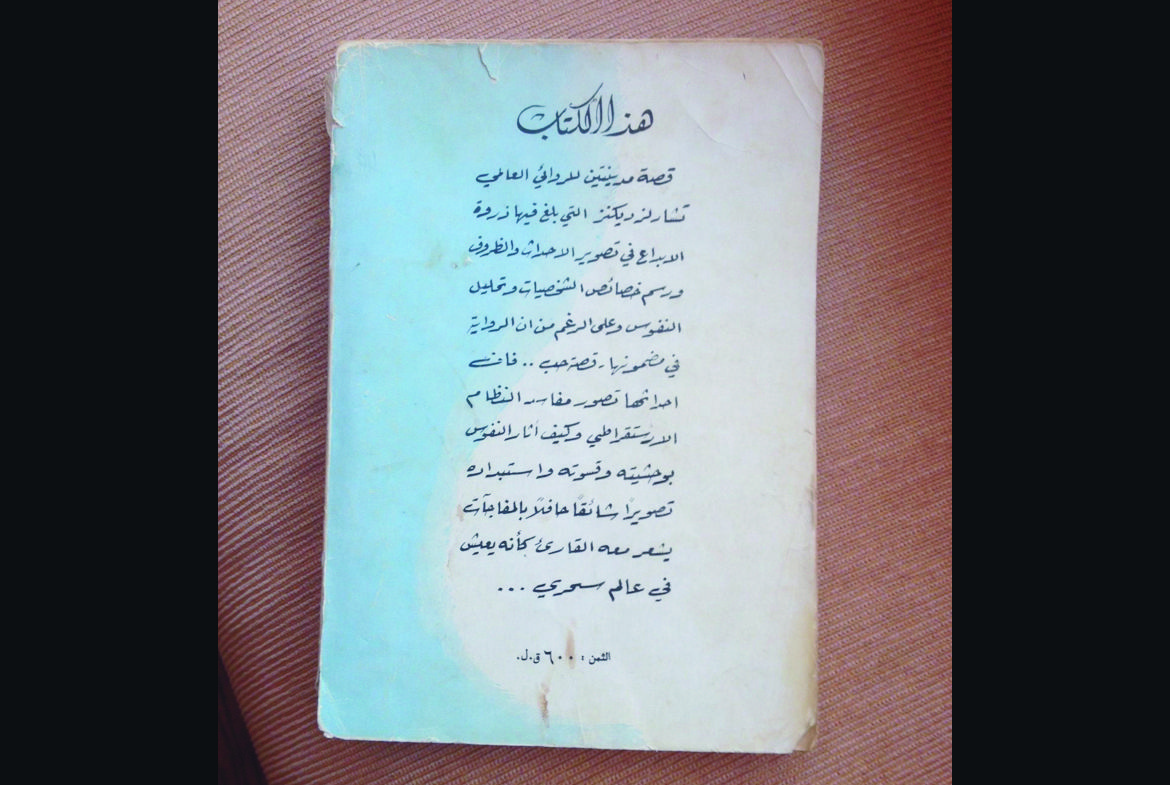 هذا الكتاب
قصة مدينتين للروائي العالمي
تشارلز ديكنز التي بلغ فيها ذروة
الابداع في تصوير الاحداث والظروف
ورسم خصائص الشخصيات وتحليل
النفوس وعلى الرغم من ان الرواية
في مضمونها قصة حب .. فان
احداثها تصور مفاسد النظام
الارستقراطي وكيف أثار النفوس
بوحشيته وقسوته واستبداده
تصويرًا شائقًا حافلًا بالمفاجآت
يشعر معه القارئ كأنه يعيش
في عالم سحري ...
الثمن : ٦٠٠ ق.ل.